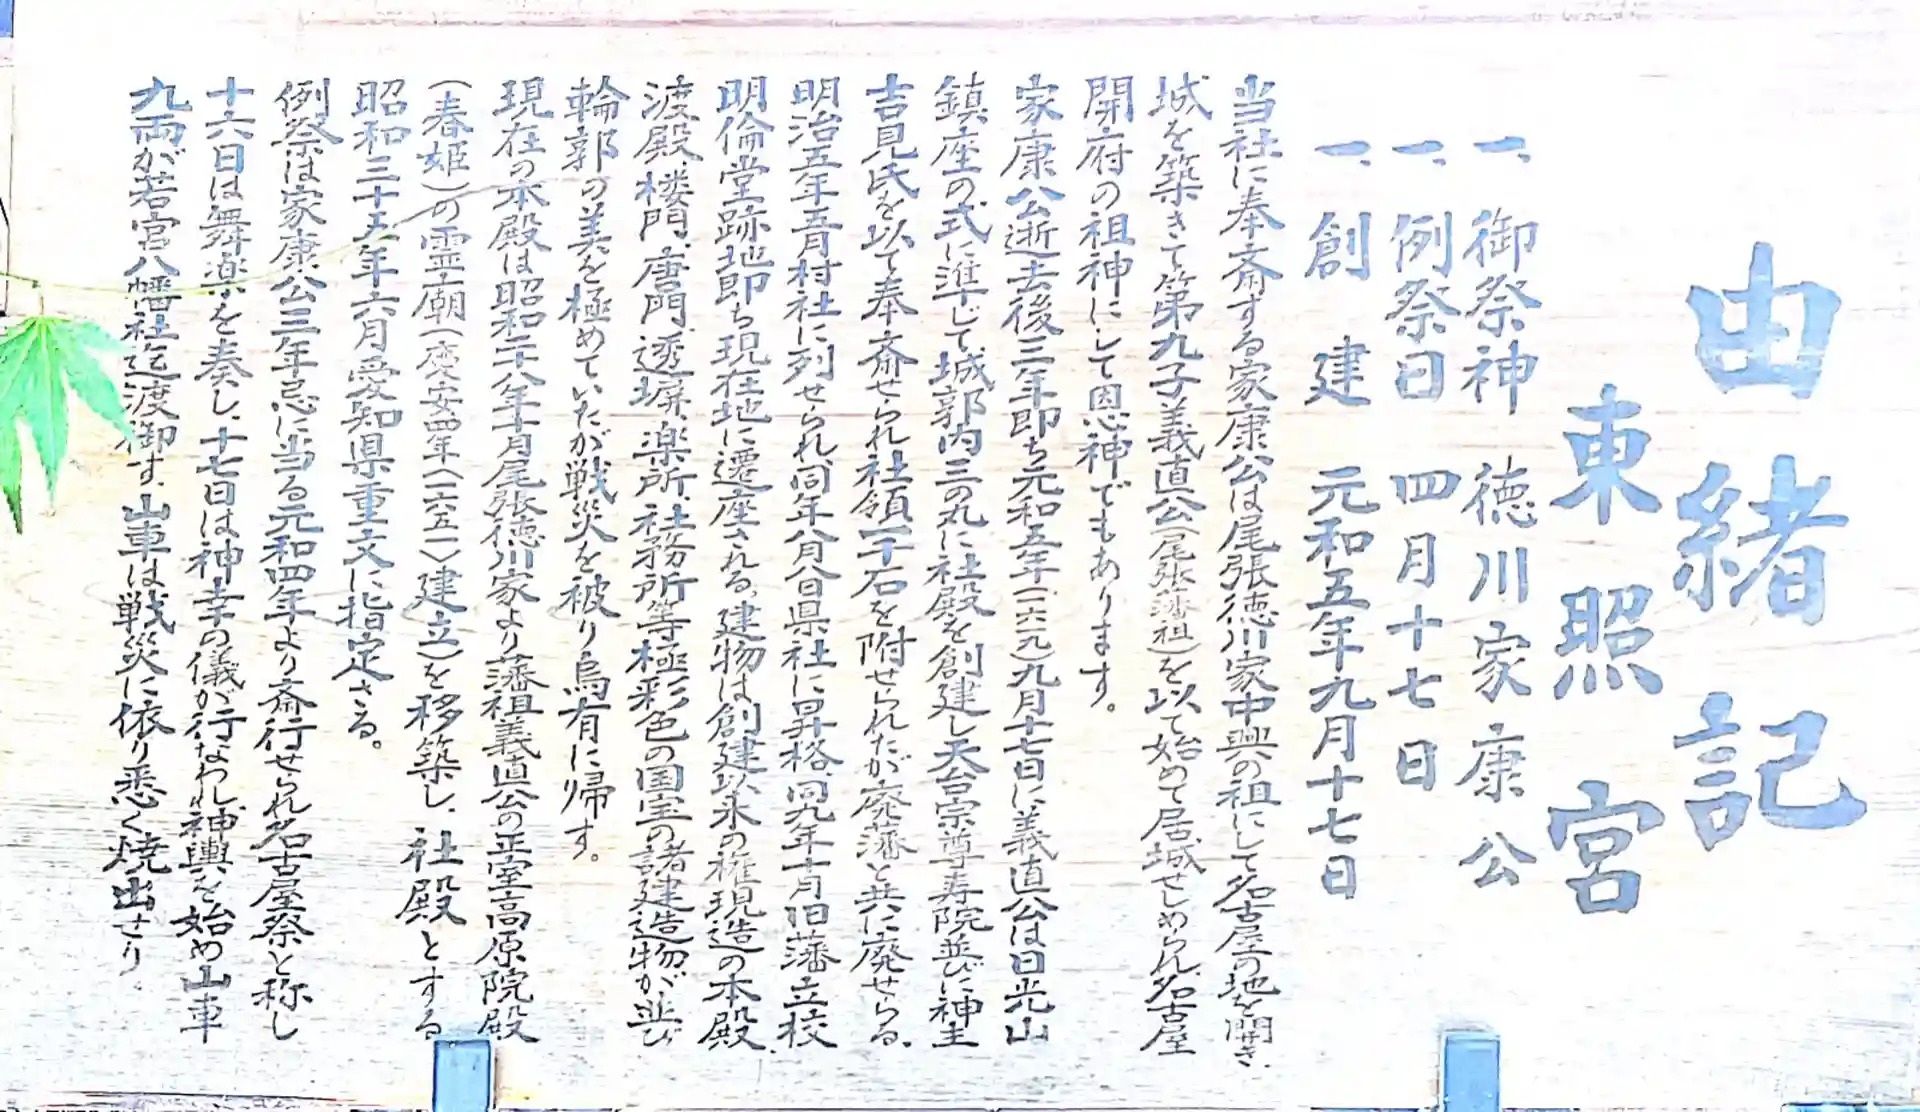 由緒記
東照宮
一、御祭神 徳川家康公
一、例祭日 四月十七日
一、創建 元和五年九月十七日
当社に奉斎する家康公は尾張徳川家中興の祖にして名古屋の地を開き、
城を築きて第九子義直公(尾張藩祖)を以て始めて居城せしめられ、名古屋
開府の祖神にして恩神でもあります。
家康公逝去後三年即ち元和五年(一六一九)九月十七日に義直公は日光山
鎮座の式に準じて、城郭内三の丸に社殿を創建し天台宗尊寿院並びに神主
吉見氏を以て奉斎せられ社領一千石を附せられたが廃藩と共に廃せらる。
明治五年五月村社に列せられ、同年八月八日県社に昇格、同九年十月旧藩立校
明倫堂跡地即ち現在地に遷座される。建物は創建以来の権現造の本殿、
渡殿、楼門、唐門、透塀、楽所、社務所等極彩色の国宝の諸建造物が、並び
輪郭の美を極めていたが戦災を被り烏有に帰す。
現在の本殿は昭和二十八年十月尾張徳川家より藩祖義直公の正室高原院殿
(春姫)の霊廟(慶安四年(一六五一)建立)を移築し、社殿とする
昭和三十五年六月愛知県重文に指定さる。
例祭は家康公三年忌に当る元和四年より斎行せられ名古屋祭と称し
十六日は舞楽を奏し、十七日は神幸の儀が行なわれ、神輿を始め山車
九両が若宮八幡社迄渡御す、山車は戦災に依り悉く焼出さり